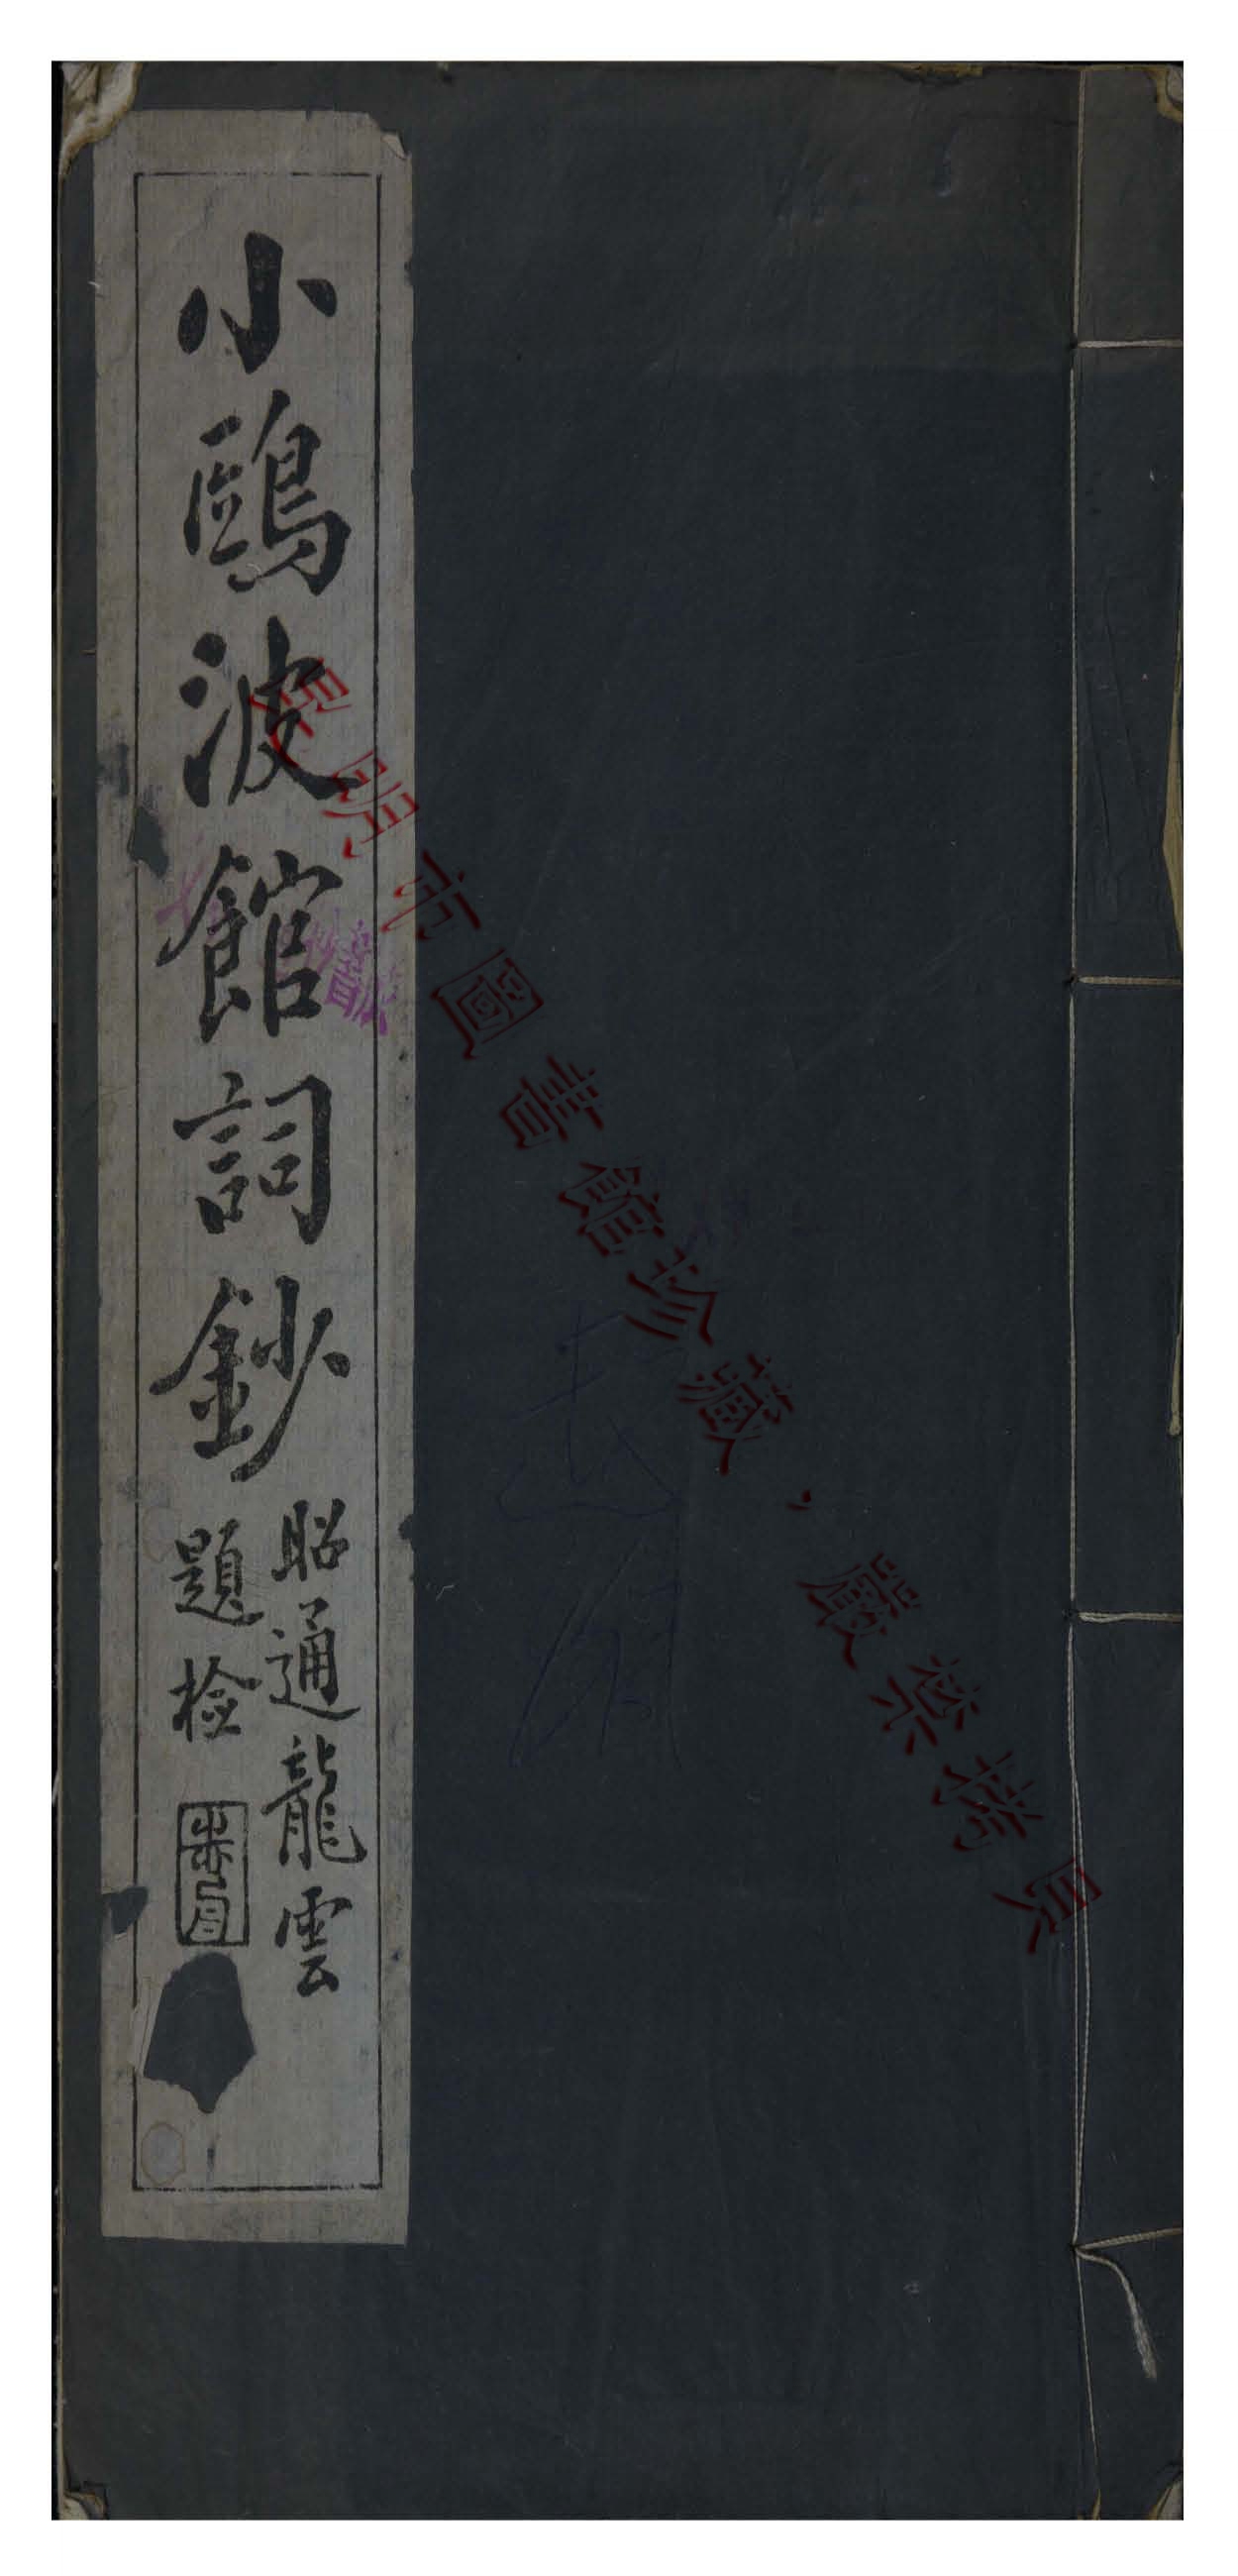 小鷗波館詞鈔
昭通龍雲
題檢
昆明市圖書館珍藏，嚴禁拷貝